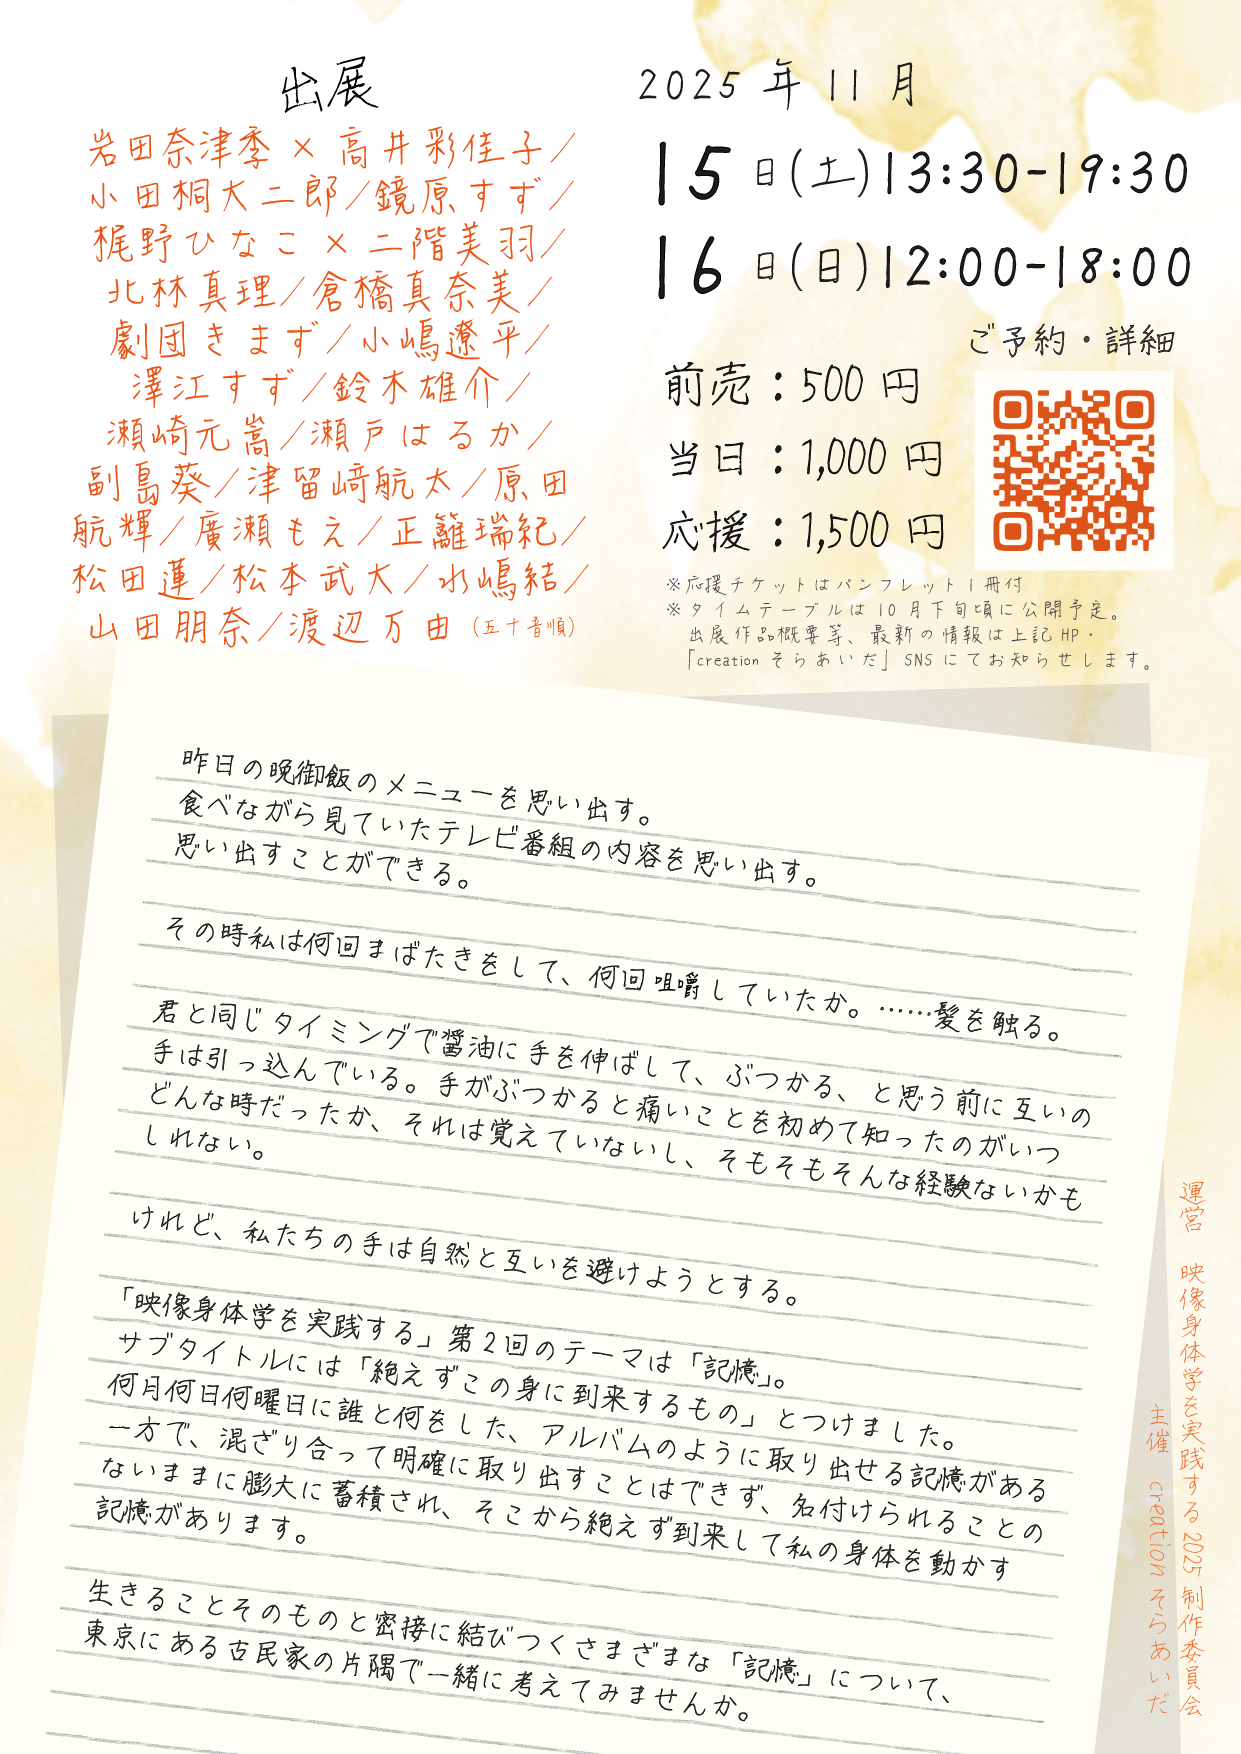 出展
岩田奈津季 × 高井彩佳子／
小田桐大二郎／鏡原すず／
梶野ひなこ × 二階美羽／
北林真理／倉橋真奈美／
劇団きまず／小嶋遼平／
澤江すず／鈴木雄介／
瀬崎元嵩／瀬戸はるか／
副島葵／津留﨑航太／原田
航輝／廣瀬もえ／正籬瑞紀／
松田蓮／松本武大／水嶋結／
山田朋奈／渡辺万由（五十音順）
2025 年 11 月
15 日（土）13:30-19:30
16 日（日）12:00-18:00
ご予約・詳細
前売：500 円
当日：1,000 円
応援：1,500 円
※応援チケットはパンフレット1冊付
※タイムテーブルは10月下旬頃に公開予定。
出展作品概要等、最新の情報は上記HP・
「creation そらあいだ」SNS にてお知らせします。
昨日の晩御飯のメニューを思い出す。
食べながら見ていたテレビ番組の内容を思い出す。
思い出すことができる。
その時私は何回まばたきをして、何回咀嚼していたか。……髪を触る。
君と同じタイミングで醤油に手を伸ばして、ぶつかる、と思う前に互いの
手は引っ込んでいる。手がぶつかると痛いことを初めて知ったのがいつ
どんな時だったか、それは覚えていないし、そもそもそんな経験ないかも
しれない。
けれど、私たちの手は自然と互いを避けようとする。
「映像身体学を実践する」第2回のテーマは「記憶」。
サブタイトルには「絶えずこの身に到来するもの」とつけました。
何月何日何曜日に誰と何をした、アルバムのように取り出せる記憶がある
一方で、混ざり合って明確に取り出すことはできず、名付けられることの
ないままに膨大に蓄積され、そこから絶えず到来して私の身体を動かす
記憶があります。
生きることそのものと密接に結びつくさまざまな「記憶」について、
東京にある古民家の片隅で一緒に考えてみませんか。
運営 映像身体学を実践する2025制作委員会
主催 creation そらあいだ